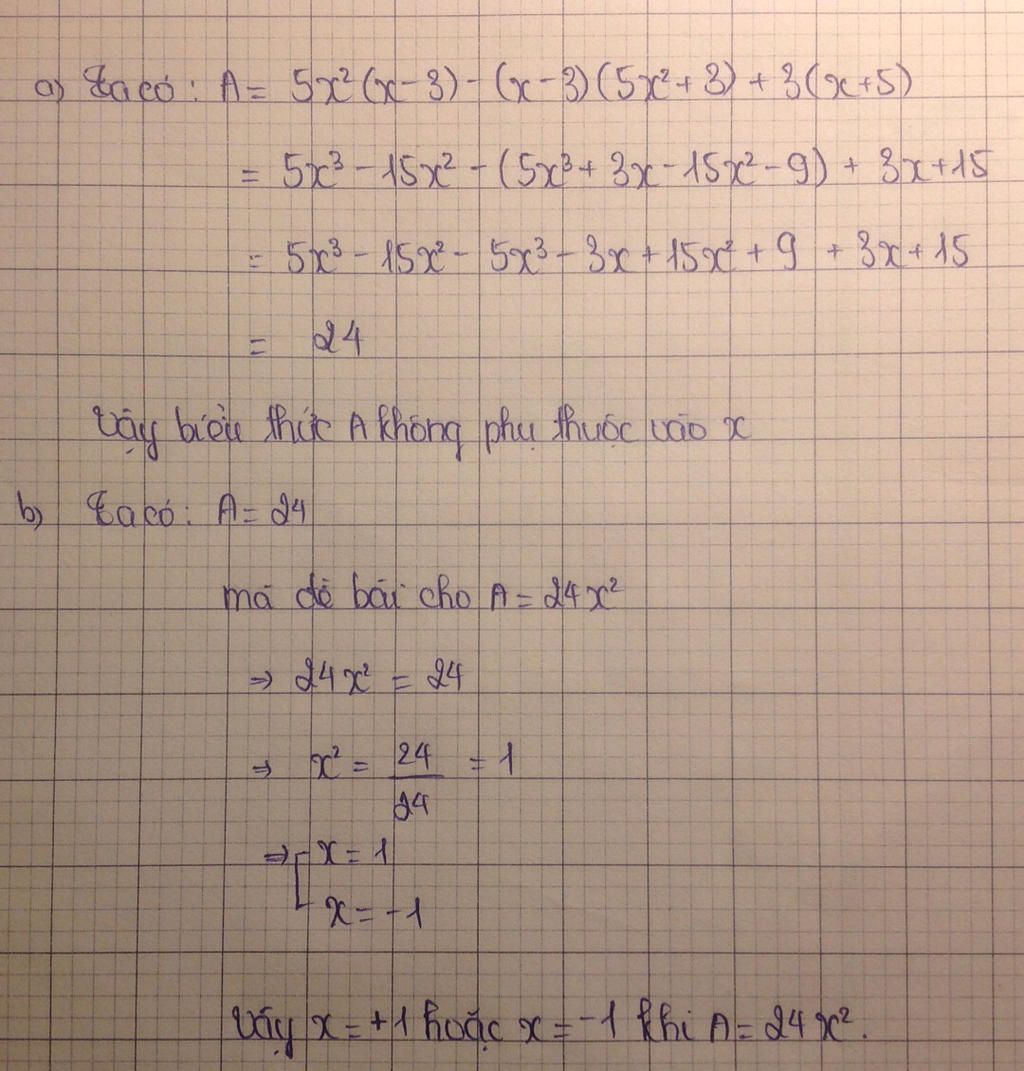 a) Ta có: A = 5x² (x - 3) - (x - 3) (5x² + 3) + 3(x + 5)
= 5x³ - 15x² - (5x³ + 3x - 15x² - 9) + 3x + 15
= 5x³ - 15x² - 5x³ - 3x + 15x² + 9 + 3x + 15
= 24
Vậy biểu thức A không phụ thuộc vào x
b) Ta có: A = 24
mà đề bài cho A = 24x²
⇒ 24x² = 24
⇒ x² = 24/24 = 1
⇒ [ x = 1
x = -1
Vậy x = +1 hoặc x = -1 khi A = 24x².